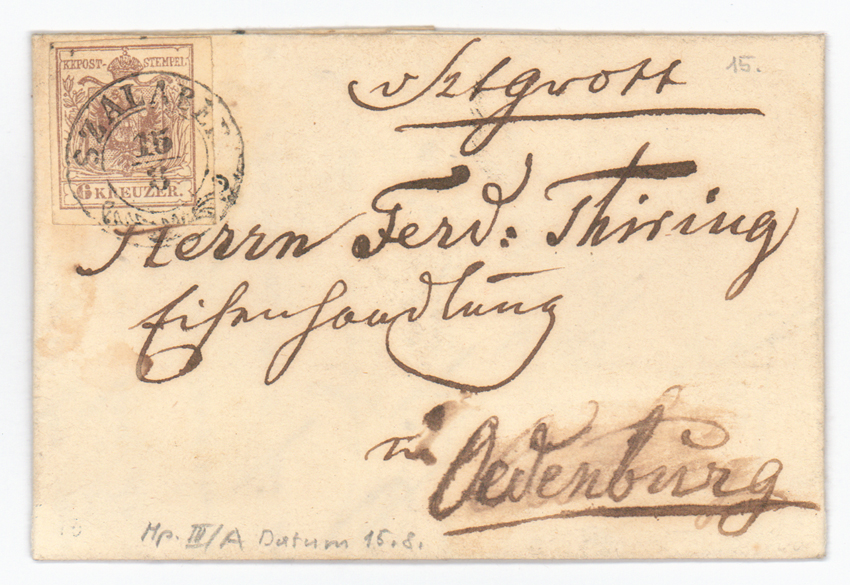 v Sztgrott
15.
KKPOST-STEMPEL
SZALABER
15
8
6 KREUZER.
Herrn Ferd: Thiring
Eisenhandlung
in
Oedenburg
Mp. III/A Datum 15.8.